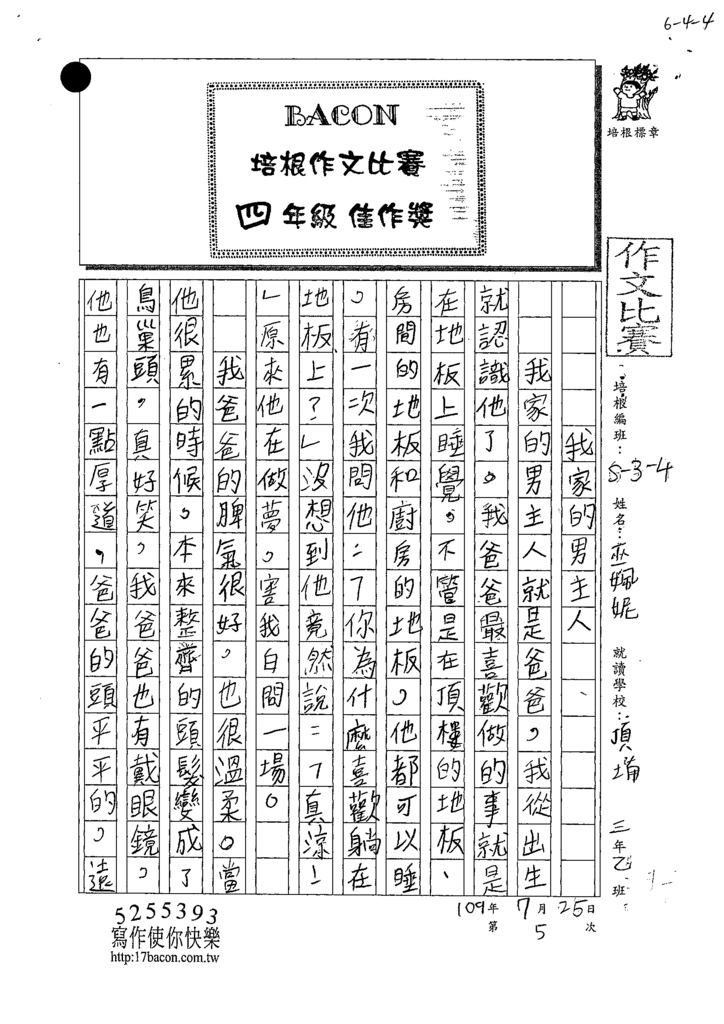 6-4-4
培根標章
BACON
培根作文比賽
四年級 佳作獎
作文比賽
培根編班：5-3-4
姓名：巫姵妮
就讀學校：頂埔 三年乙班
我家的男主人
我家的男主人就是爸爸。我從出生
就認識他了。我爸爸最喜歡做的事就是
在地板上睡覺。不管是在頂樓的地板、
房間的地板和廚房的地板。他都可以睡
。有一次我問他：「你為什麼喜歡躺在
地板上？」沒想到他竟然說：「真涼！
」原來他在做夢。害我白問一場。
我爸爸的脾氣很好。也很溫柔。當
他很累的時候。本來整齊的頭髮變成了
鳥巢頭，真好笑。我爸爸也有戴眼鏡。
他也有一點厚道，爸爸的頭平平的。遠
109年7月25日
第5次
5255393
寫作使你快樂
http:17bacon.com.tw